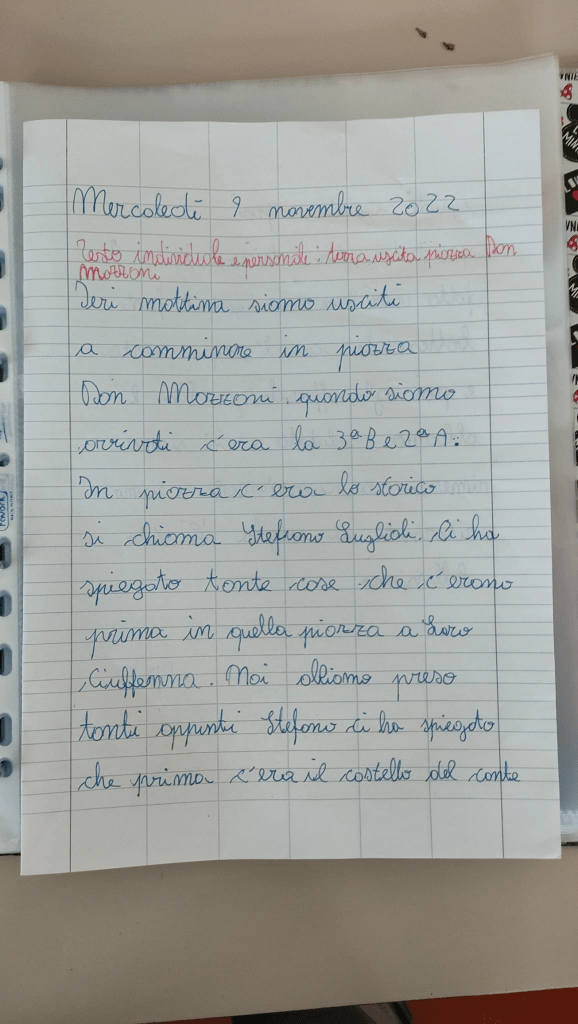 Mercoledì 9 novembre 2022
Testo individuale e personale: terza uscita piazza Don
Mozzoni
Ieri mattina siamo usciti
a camminare in piazza
Don Mozzoni. quando siamo
arrivati c'era la 3ªB e 2ªA:
In piazza c'era lo storico
si chiama Stefano Luglioli. Ci ha
spiegato tante cose che c'erano
prima in quella piazza a Loro
Ciuffenna. Noi abbiamo preso
tanti appunti Stefano ci ha spiegato
che prima c'era il castello del conte